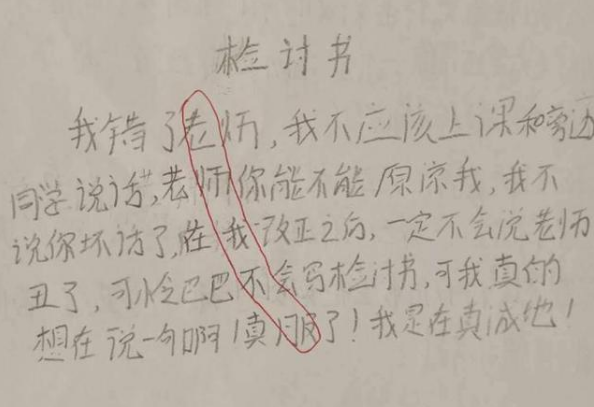 检讨书
我错了老师,我不应该上课和旁边
同学说话,老师你能不能原谅我,我不
说你坏话了,在我改正之后,一定不会说老师
丑了,可怜巴巴不会写检讨书,可我真的
想在说一句啊!真服了!我是在真诚地!